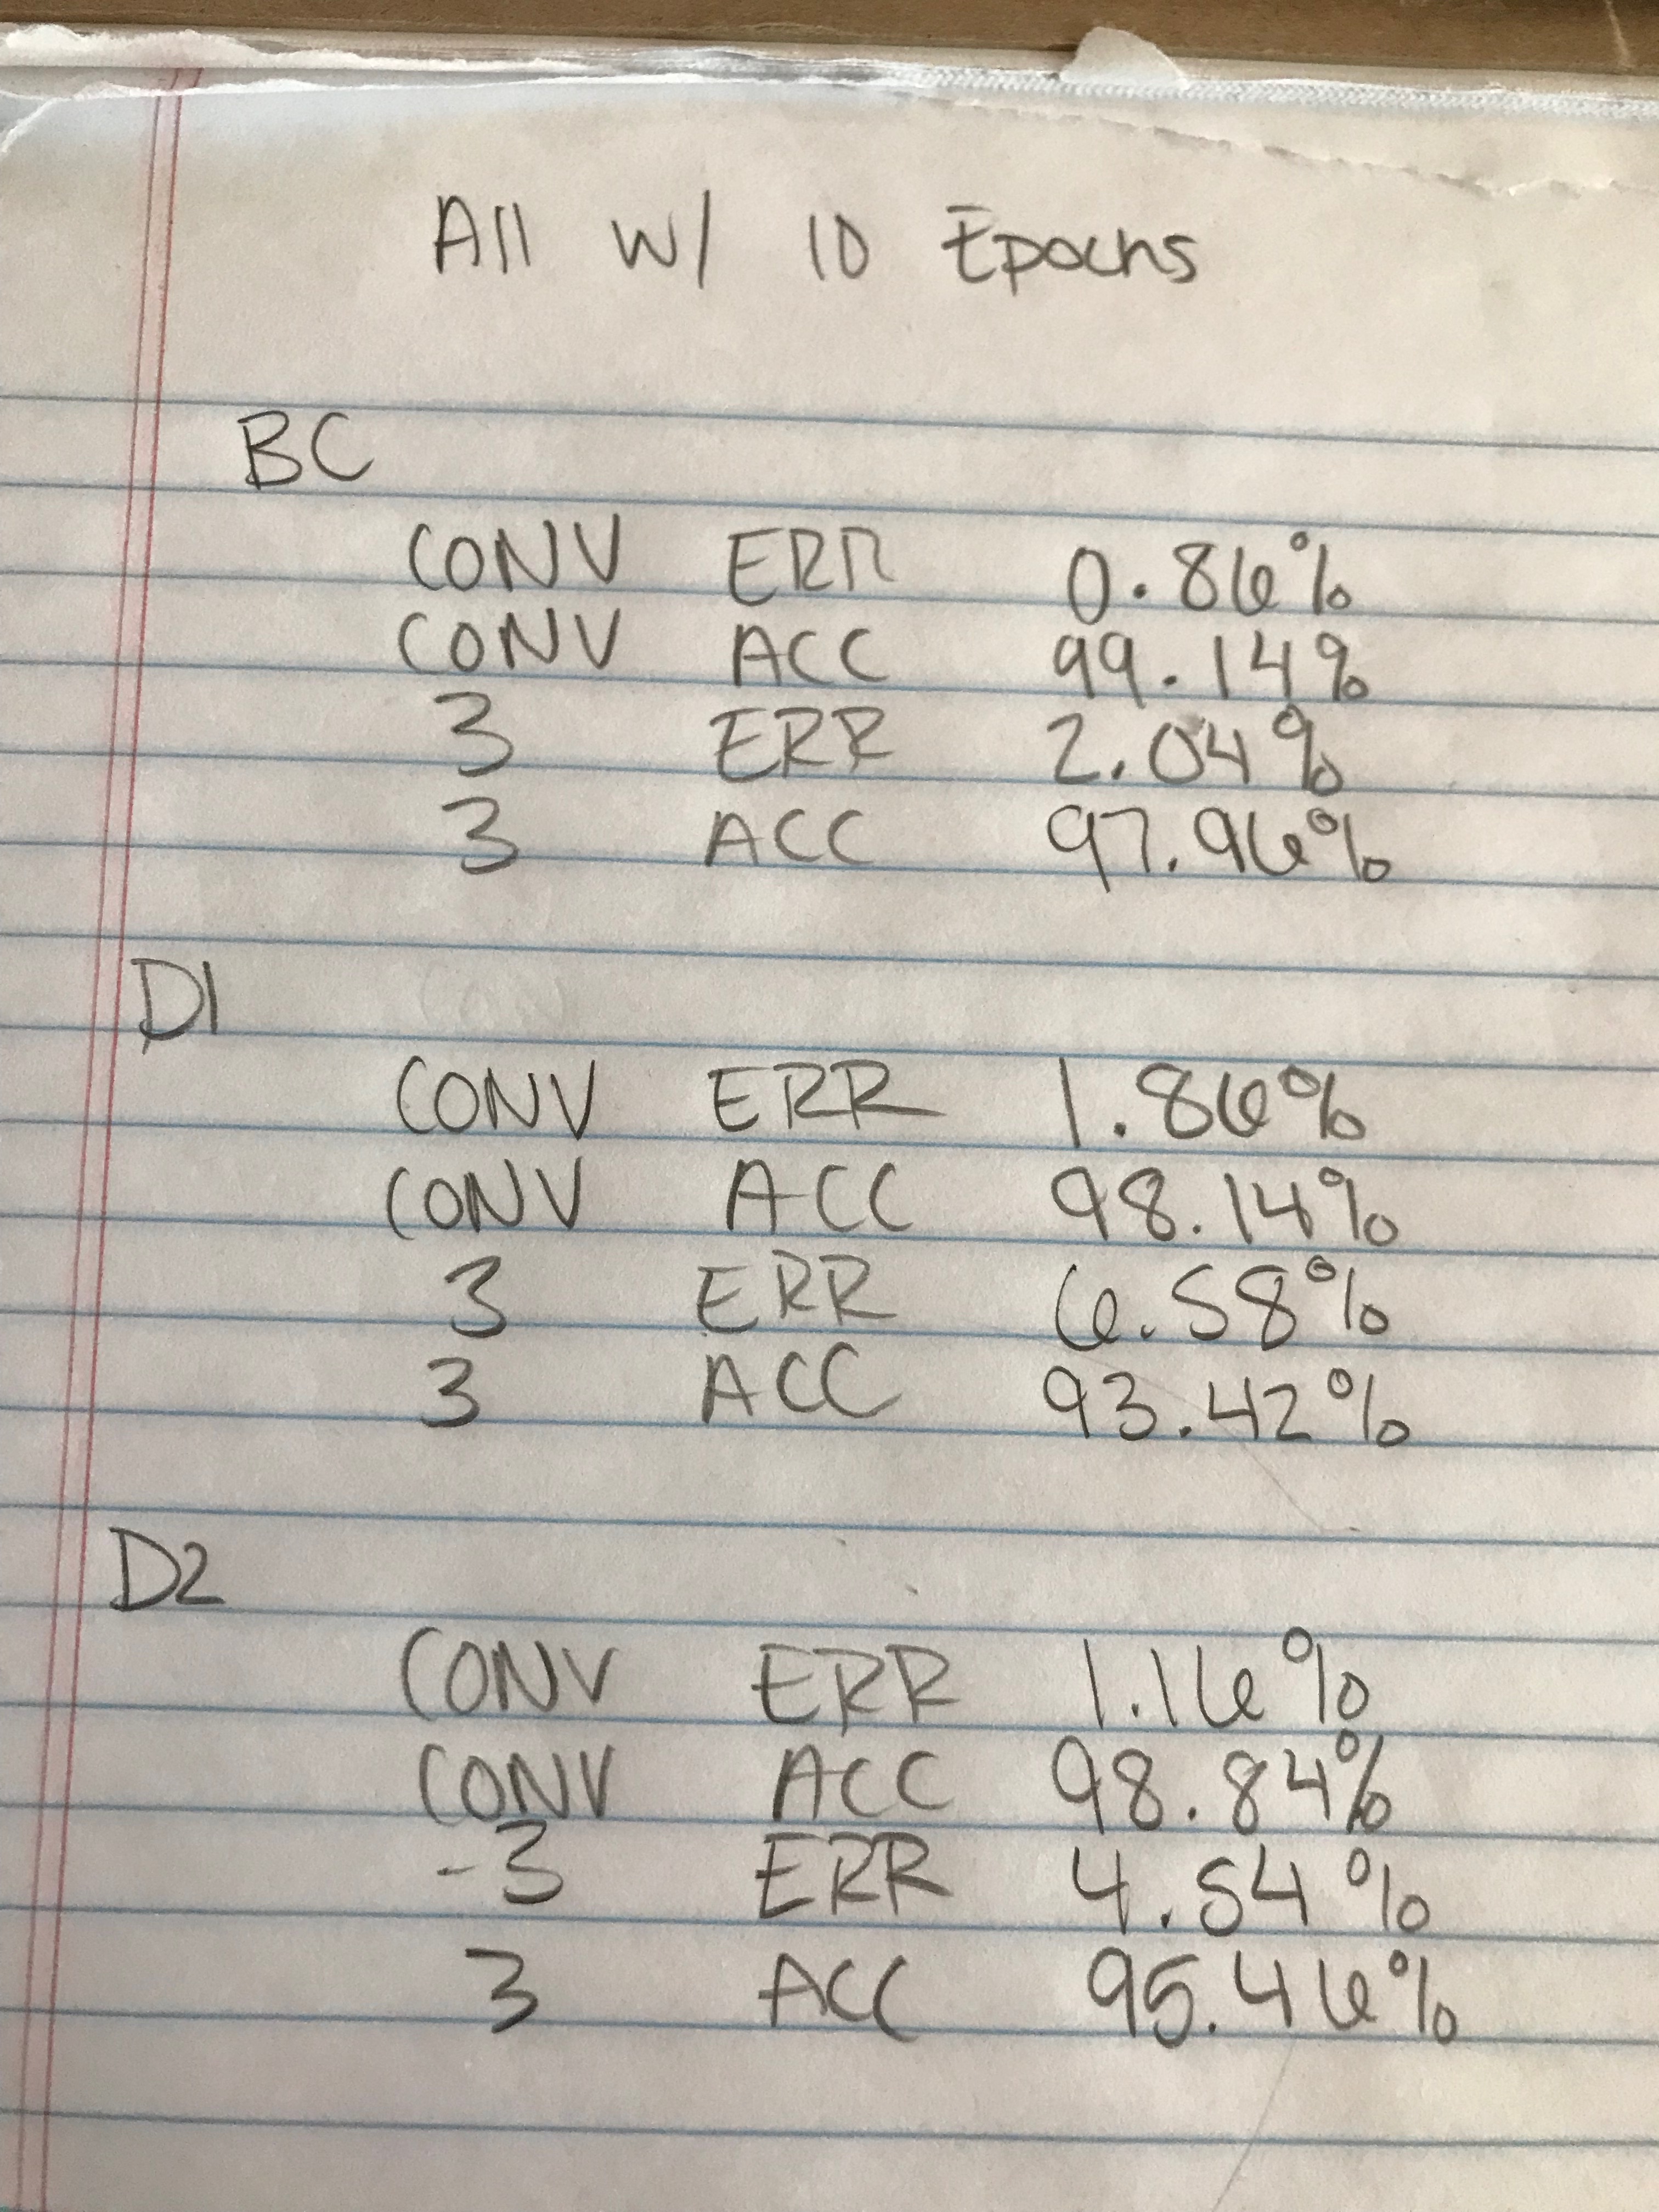 All w/ 10 Epochs
BC
CONV ERR 0.86%
CONV ACC 99.14%
3 ERR 2.04%
3 ACC 97.96%
D1
CONV ERR 1.86%
CONV ACC 98.14%
3 ERR 6.58%
3 ACC 93.42%
D2
CONV ERR 1.16%
CONV ACC 98.84%
-3 ERR 4.54%
3 ACC 95.46%